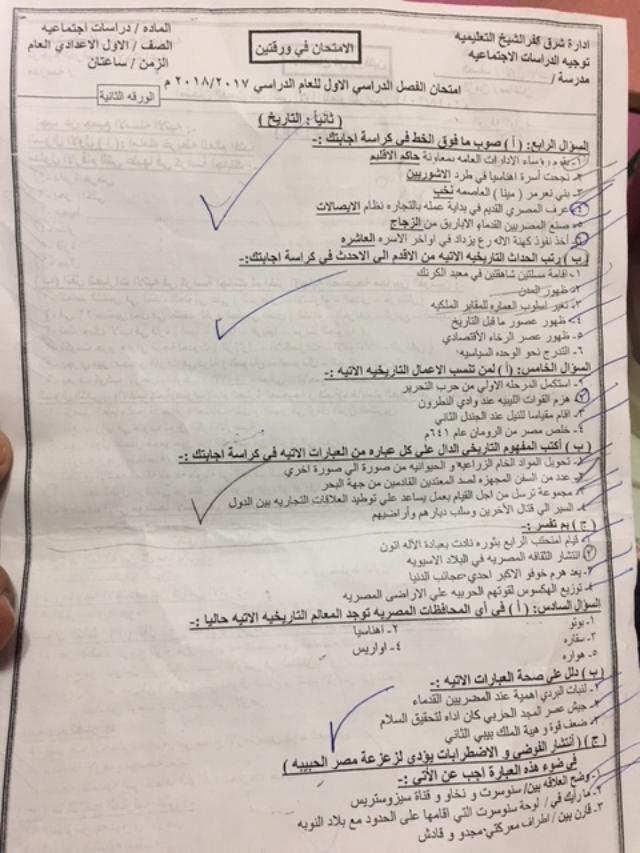 ادارة شرق كفرالشيخ التعليميه
توجيه الدراسات الاجتماعيه
مدرسة /
الامتحان في ورقتين
الماده / دراسات اجتماعيه
الصف / الاول الاعدادي العام
الزمن / ساعتان
امتحان الفصل الدراسي الاول للعام الدراسي ٢٠١٨/٢٠١٧ م
الورقه الثانية
( ثانياً : التاريخ )
السؤال الرابع: ( أ ) صوب ما فوق الخط في كراسة اجابتك :-
١- يقوم رؤساء الادارات العامه بمعاونة حاكم الاقليم
٢- نجحت أسرة اهناسيا في طرد الاشوريين
٣- بني نعرمر ( مينا ) العاصمه نخب
٤- عرف المصري القديم في بداية عمله بالتجاره نظام الايصالات
٥- صنع المصريين القدماء الاباريق من الزجاج
٦- أخذ نفوذ كهنة الاله رع يزداد في اواخر الاسره العاشره
( ب ) رتب الحداث التاريخيه الاتيه من الاقدم الي الاحدث في كراسة اجابتك:-
١- اقامة مسلتين شاهقتين في معبد الكرنك
٢- ظهور المدن
٣- تغير اسلوب العماره للمقابر الملكيه
٤- ظهور عصور ما قبل التاريخ
٥- ظهور عصر الرخاء الأقتصادي
٦- التدرج نحو الوحده السياسيه
السؤال الخامس: ( أ ) لمن تنسب الاعمال التاريخيه الاتيه :-
١- استكمل المرحله الاولي من حرب التحرير
٢- هزم القوات الليبيه عند وادي النطرون
٣- اقام مقياسا للنيل عند الجندل الثاني
٤- خلص مصر من الرومان عام ٦٤١م
( ب ) أكتب المفهوم التاريخي الدال علي كل عباره من العبارات الاتيه في كراسة اجابتك :-
١- تحويل المواد الخام الزراعيه و الحيوانيه من صورة الي صورة اخري
٢- عدد من السفن المجهزه لصد المعتدين القادمين من جهة البحر
٣- مجموعة ترسل من اجل القيام بعمل يساعد علي توطيد العلاقات التجاريه بين الدول
٤- السير الي قتال الأخرين وسلب ديارهم وأراضيهم
( ج ) بم تفسر :-
١- قيام امنحتب الرابع بثوره نادت بعبادة الأله اتون
٢- انتشار الثقافه المصريه في البلاد الاسيويه
٣- يعد هرم خوفو الاكبر احدي عجائب الدنيا
٤- توزيع الهكسوس لقوتهم الحربيه علي الاراضى المصريه
السؤال السادس: ( أ ) في أي المحافظات المصريه توجد المعالم التاريخيه الاتيه حاليا :-
١- بوتو
٢- اهناسيا
٣- سقاره
٤- اواريس
٥- هواره
( ب ) دلل علي صحة العبارات الاتيه :-
١- لنبات البردي اهمية عند المصريين القدماء
٢- جيش عصر المجد الحربي كان اداه لتحقيق السلام
٣- ضعف قوة و هيبة الملك بيبي الثاني
( ج ) ( أنتشار الفوضي و الاضطرابات يؤدى لزعزعة مصر الحبيبه )
في ضوء هذه العبارة اجب عن الأتي :-
١- وضح العلاقه بين/ سنوسرت و نخاو و قناة سيزوستريس
٢- ما رأيك في / لوحة سنوسرت التي اقامها على الحدود مع بلاد النوبه
٣- قارن بين / اطراف معركتي: مجدو و قادش